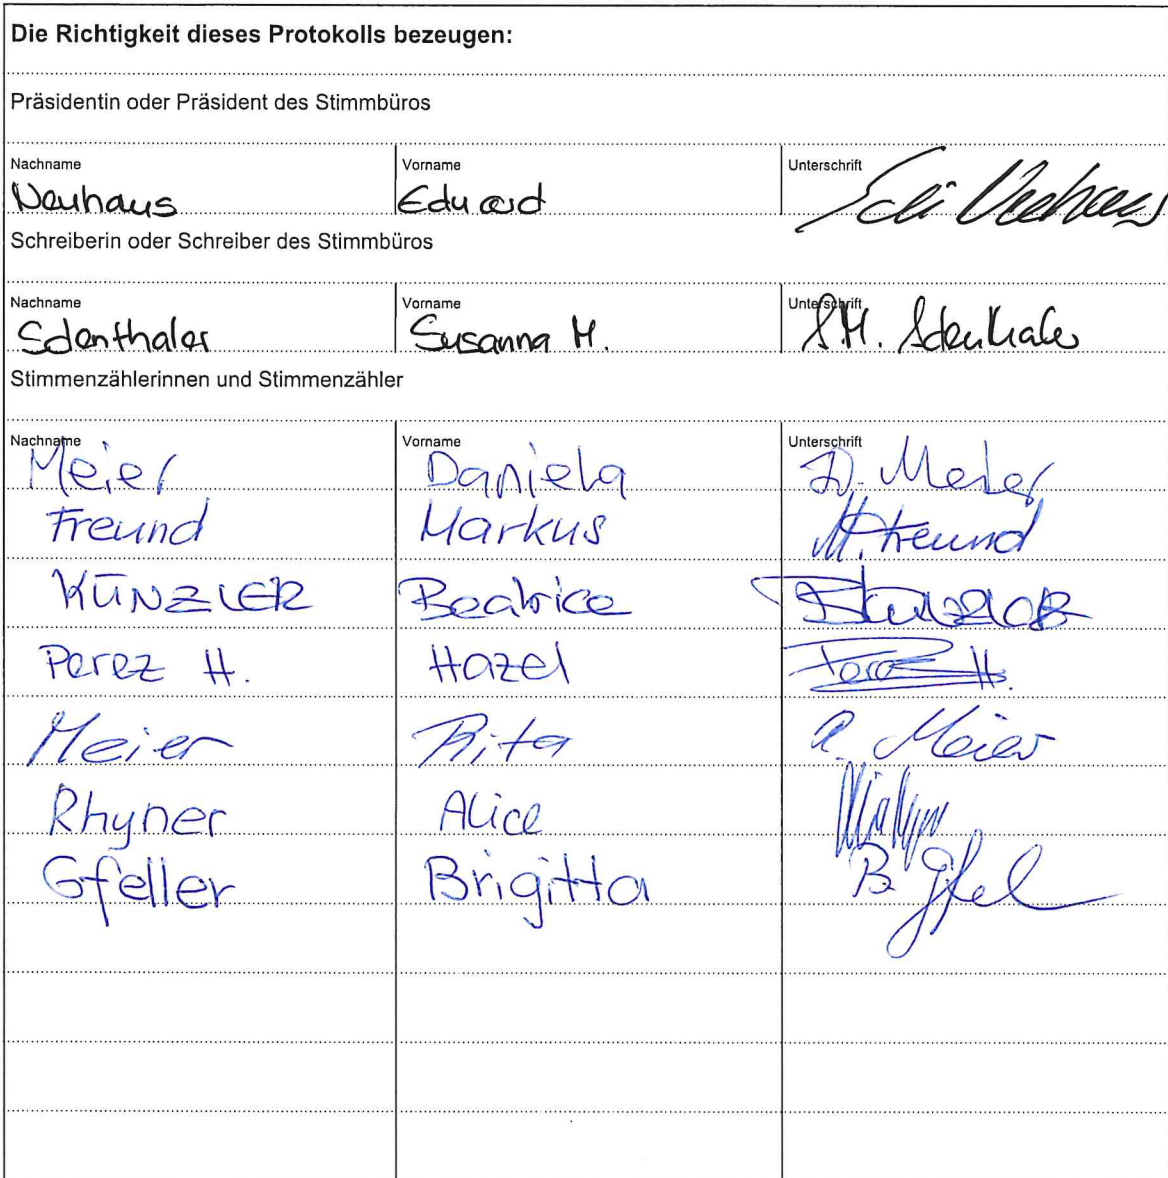 Die Richtigkeit dieses Protokolls bezeugen:
Präsidentin oder Präsident des Stimmbüros
Nachname Vorname Unterschrift
Neuhaus Eduard Edi Neuhaus
Schreiberin oder Schreiber des Stimmbüros
Nachname Vorname Unterschrift
Sdenthaler Susanna M. S.M. Sdenthaler
Stimmenzählerinnen und Stimmenzähler
Nachname Vorname Unterschrift
Meier Daniela D. Meier
Freund Markus M. Freund
KÜNZLER Beatrice
Perez H. Hazel Perez H.
Meier Rita R. Meier
Rhyner Alice
Gfeller Brigitta B. Gfel